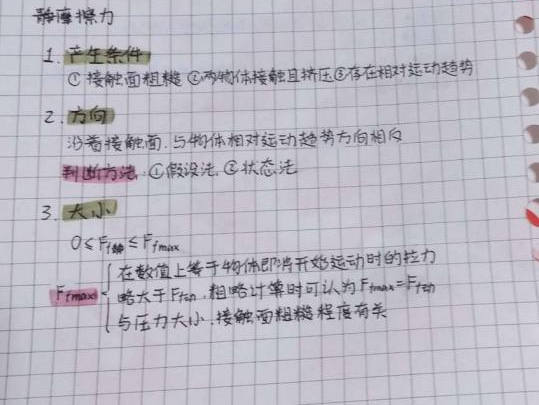 静摩擦力
1. 产生条件
① 接触面粗糙 ②两物体接触且挤压 ③存在相对运动趋势
2. 方向
沿着接触面,与物体相对运动趋势方向相反
判断方法:①假设法 ②状态法
3. 大小
0≤Ff静≤Ffmax
在数值上等于物体即将开始运动时的拉力
Ffmax 略大于Ff动,粗略计算时可认为Ffmax=Ff动
与压力大小、接触面粗糙程度有关